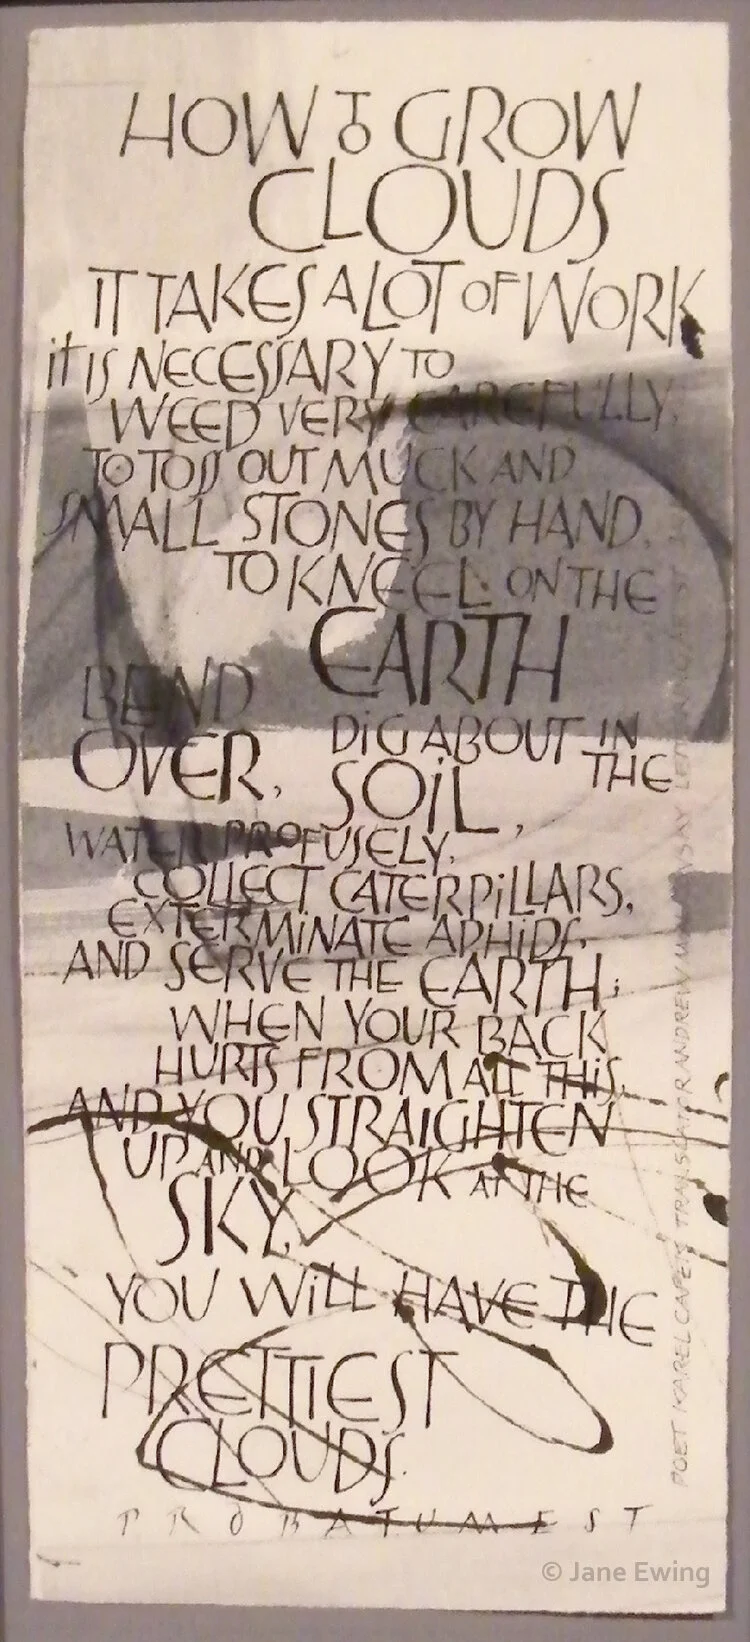 HOW TO GROW
CLOUDS
IT TAKES A LOT OF WORK
it IS NECESSARY TO
WEED VERY CAREFULLY,
TO TOSS OUT MUCK AND
SMALL STONES BY HAND,
TO KNEEL ON THE
EARTH
BEND
OVER,
DiG ABOUT IN
THE
SOiL,
WATER PROFUSELY,
COLLECT CATERPiLLARS,
EXTERMiNATE APHiDS,
AND SERVE THE EARTH;
WHEN YOUR BACK
HURTS FROM ALL THiS,
AND YOU STRAIGHTEN
UP AND LOOK AT THE
SKY,
YOU WiLL HAVE THE
PRETTiEST
CLOUDS.
PROBATUM EST
POET KAREL CAPEK TRANSLATOR ANDREW
© Jane Ewing